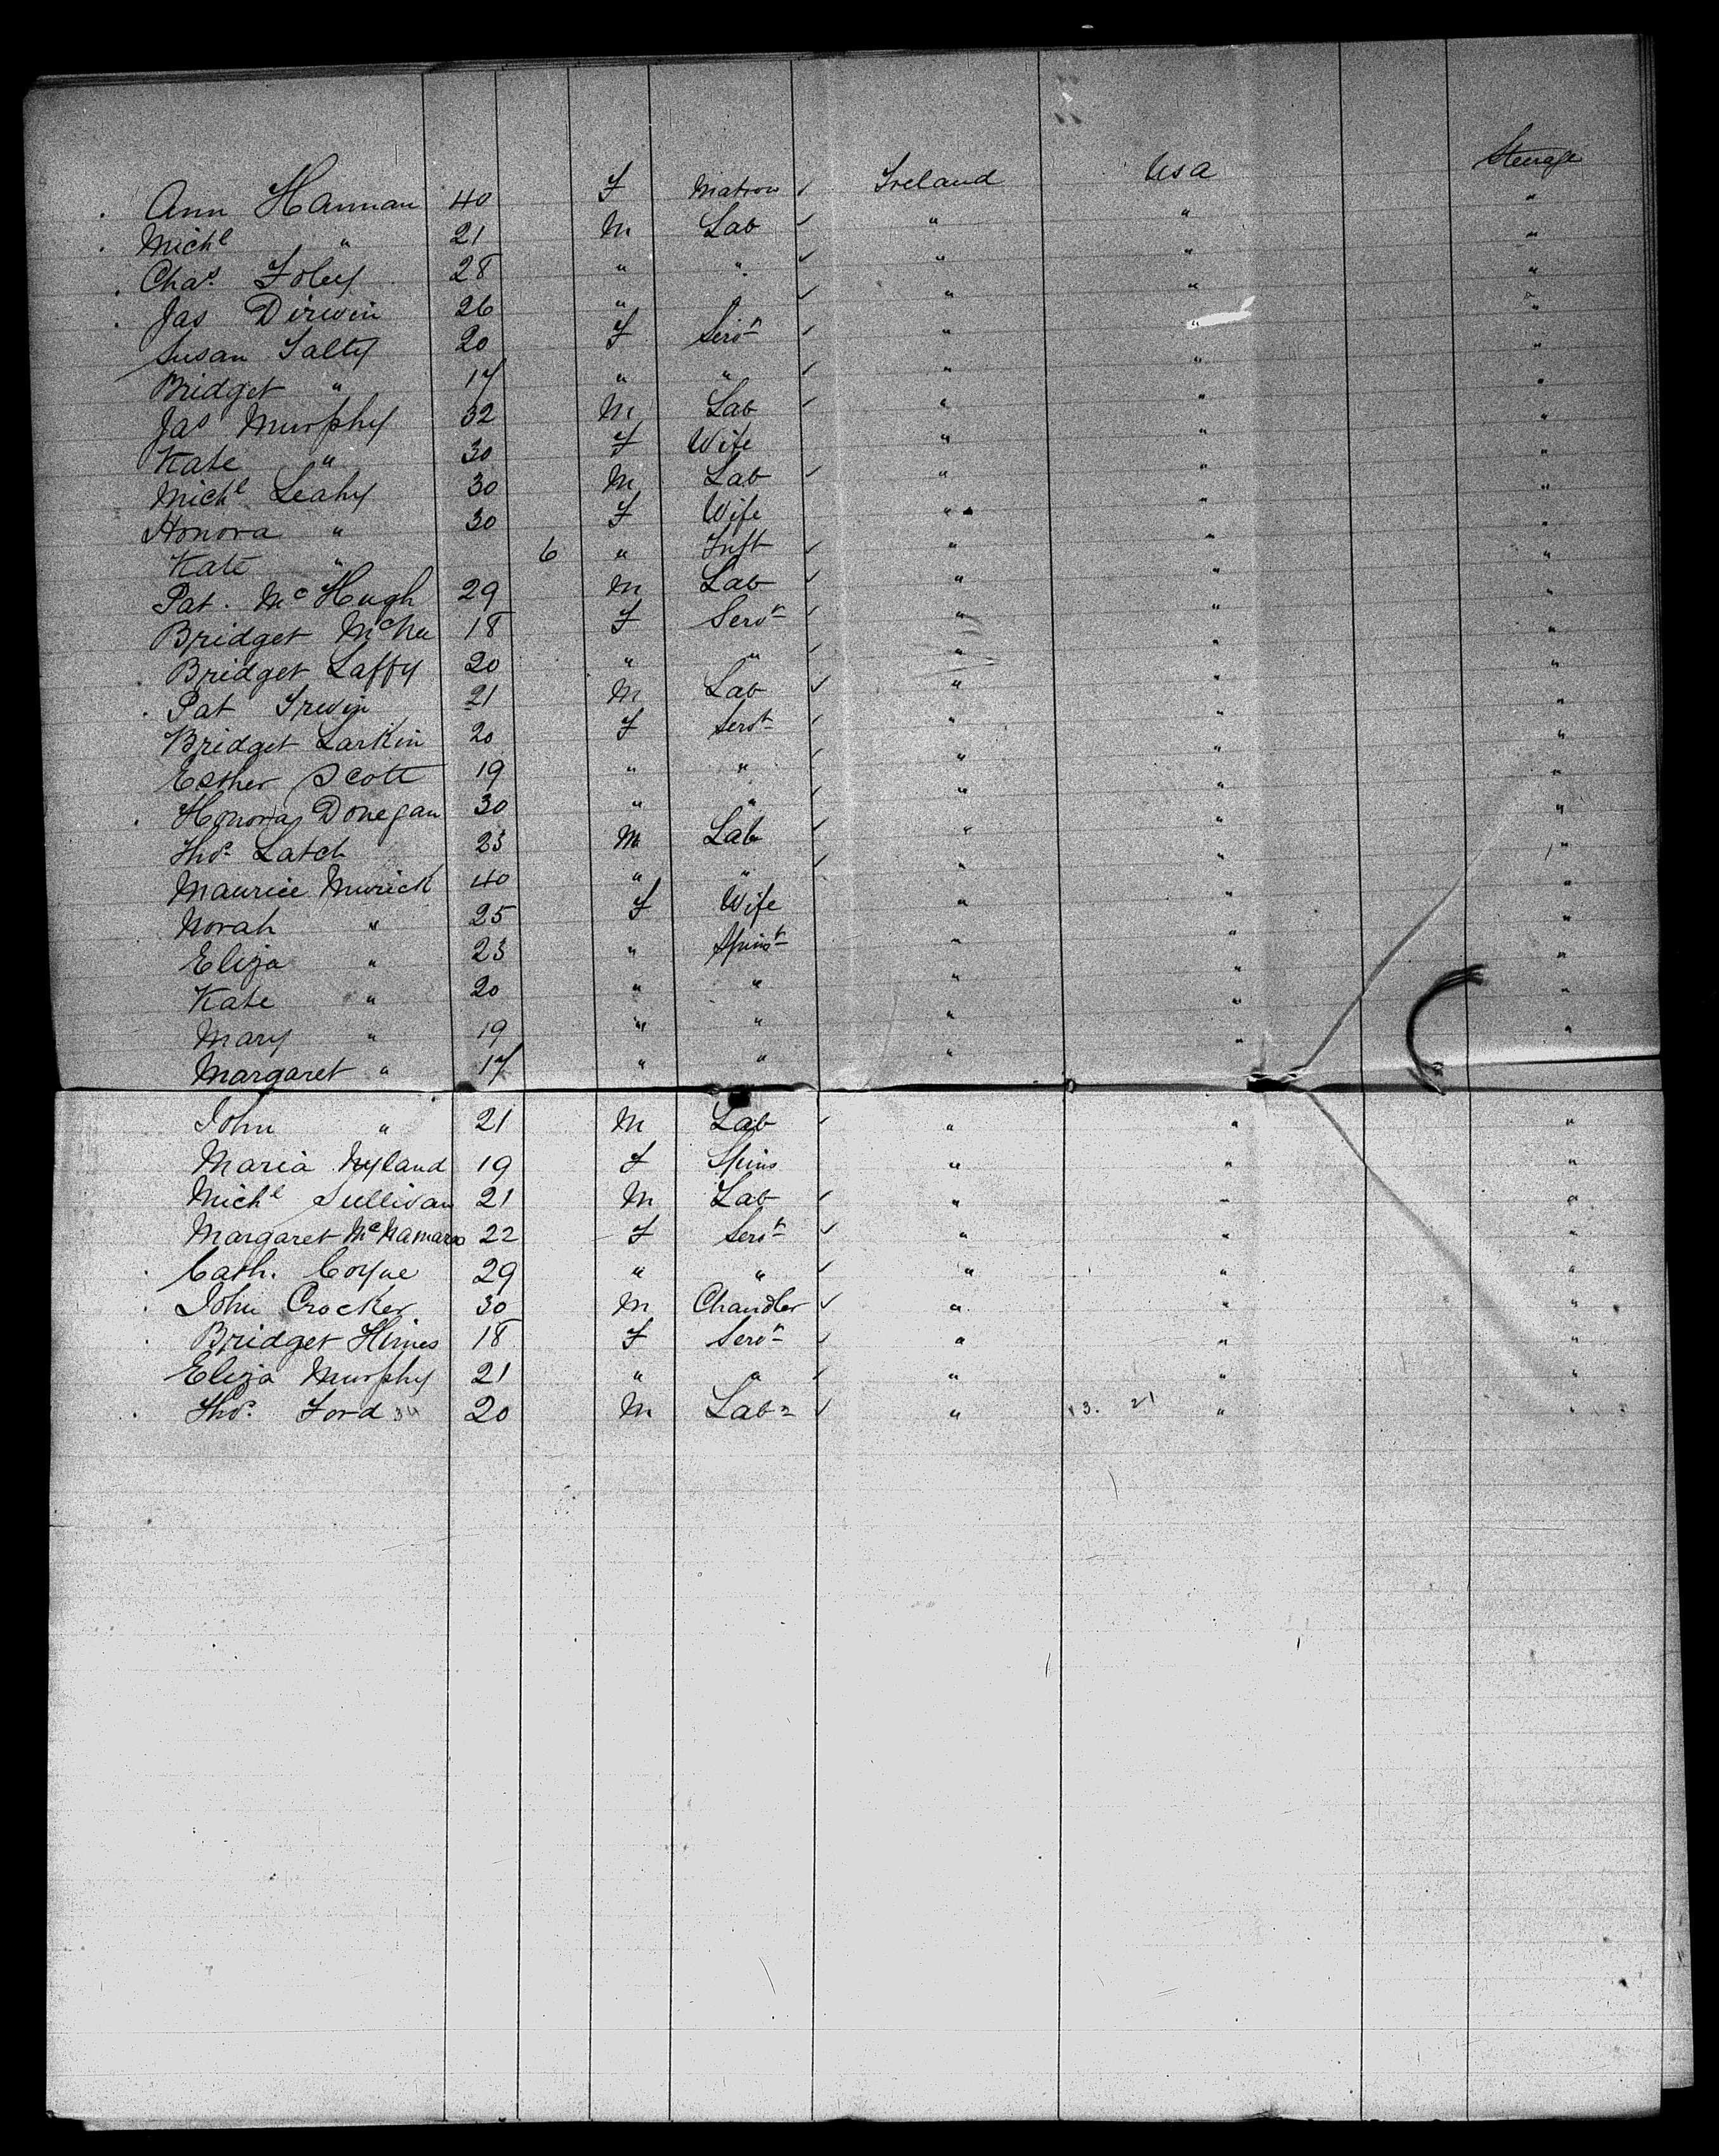 Ann Hannan 40 F Matron ✓ Ireland USA Steerage
Michl " 21 M Lab ✓ " " "
Chas. Foley 28 " " ✓ " " "
Jas Dirwin 26 " ✓ " " "
Susan Salty 20 F Servt ✓ " " "
Bridget " 17 " " ✓ " " "
Jas Murphy 32 M Lab ✓ " " "
Kate " 30 F Wife " " "
Michl Leahy 30 M Lab ✓ " " "
Honora " 30 F Wife " " "
Kate " 6 " Inft ✓ " " "
Pat. McHugh 29 M Lab ✓ " " "
Bridget McHu 18 F Servt ✓ " " "
Bridget Laffy 20 " " ✓ " " "
Pat Irwin 21 M Lab ✓ " " "
Bridget Larkin 20 F Servt ✓ " " "
Esther Scott 19 " " ✓ " " "
Honora Donegan 30 " " ✓ " " "
Thos. Latch 23 M Lab ✓ " " "
Maurice Murick 40 " " ✓ " " "
Norah " 25 F Wife " " "
Eliza " 23 " Spinst " " "
Kate " 20 " " " " "
Mary " 19 " " " " "
Margaret " 17 " " " " "
John " 21 M Lab ✓ " " "
Maria Hyland 19 F Spins " " "
Michl Sullivan 21 M Lab ✓ " " "
Margaret McNamara 22 F Servt ✓ " " "
Cath. Coyne 29 " " ✓ " " "
John Crocker 30 M Chandler ✓ " " "
Bridget Himes 18 F Servt ✓ " " "
Eliza Murphy 21 " " ✓ " " "
Thos. Ford 34 20 M Labr ✓ " 13. 21 " "